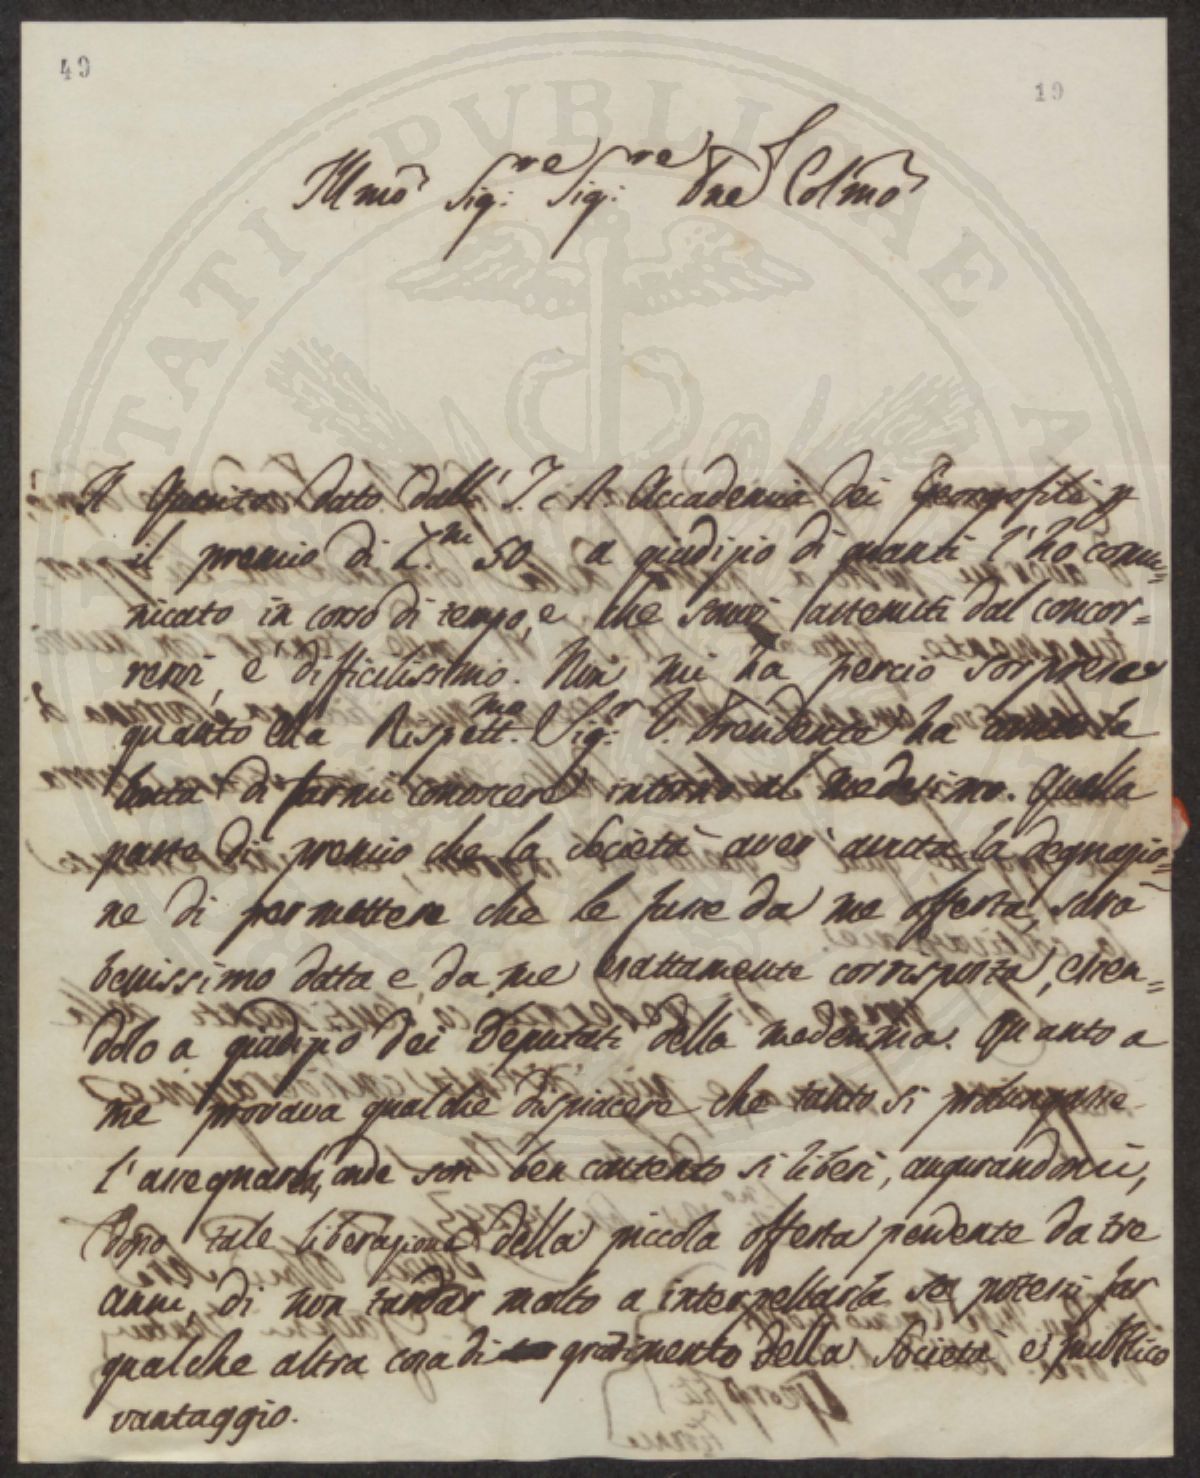 49
19
PROSPERITATI PUBLICAE A
Illmo Sig:re Sig:re Pne Colmo
Il Quesito dato dall' I. e R. Accademia dei Georgofili p
il premio di Z.ni 50. a giudizio di quanti l'ho comu=
nicato in corso di tempo, e che sonosi astenuti dal concor=
rervi, è difficilissimo. Non mi ha perciò sorpreso
quanto ella Rispett.mo Sig.r V. Presidente ha avuto la
bontà di farmi conoscere intorno al medesimo. Quella
parte di premio che la Società aveva avuta la degnazio=
ne di permettere che le fosse da me offerta, sarà
benissimo data e da me esattamente corrisposta, essen=
dolo a giudizio dei Deputati della medesima. Quanto a
me provava qualche dispiacere che tanto si prolungasse
l'assegnarla, onde son ben contento si liberi, augurandomi,
dopo tale liberazione della piccola offerta pendente da tre
anni, di non tardar molto a interpellarla se potessi far
qualche altra cosa di gradimento della Società e pubblico
vantaggio.